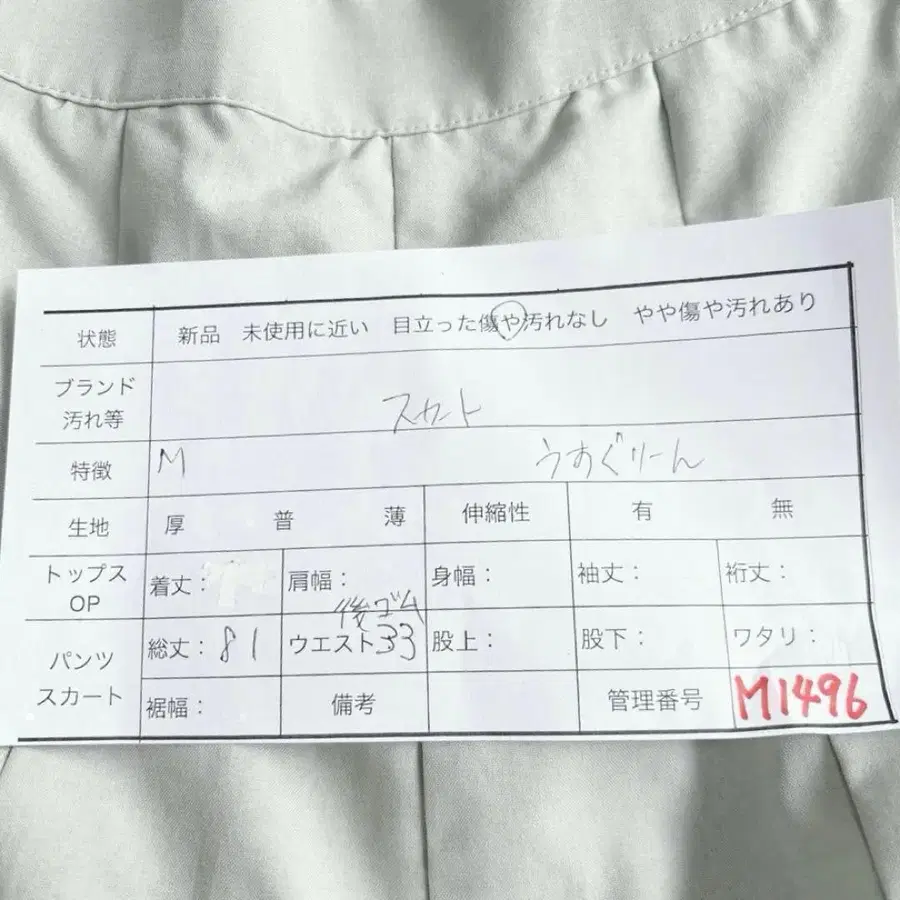 状態 新品 未使用に近い 目立った傷や汚れなし やや傷や汚れあり
ブランド
汚れ等 スカート
特徴 M うすぐりーん
生地 厚 普 薄 伸縮性 有 無
トップス
OP 着丈: 肩幅: 身幅: 袖丈: 裄丈:
後ゴム
パンツ
スカート 総丈:81 ウエスト33 股上: 股下: ワタリ:
裾幅: 備考 管理番号 M1496